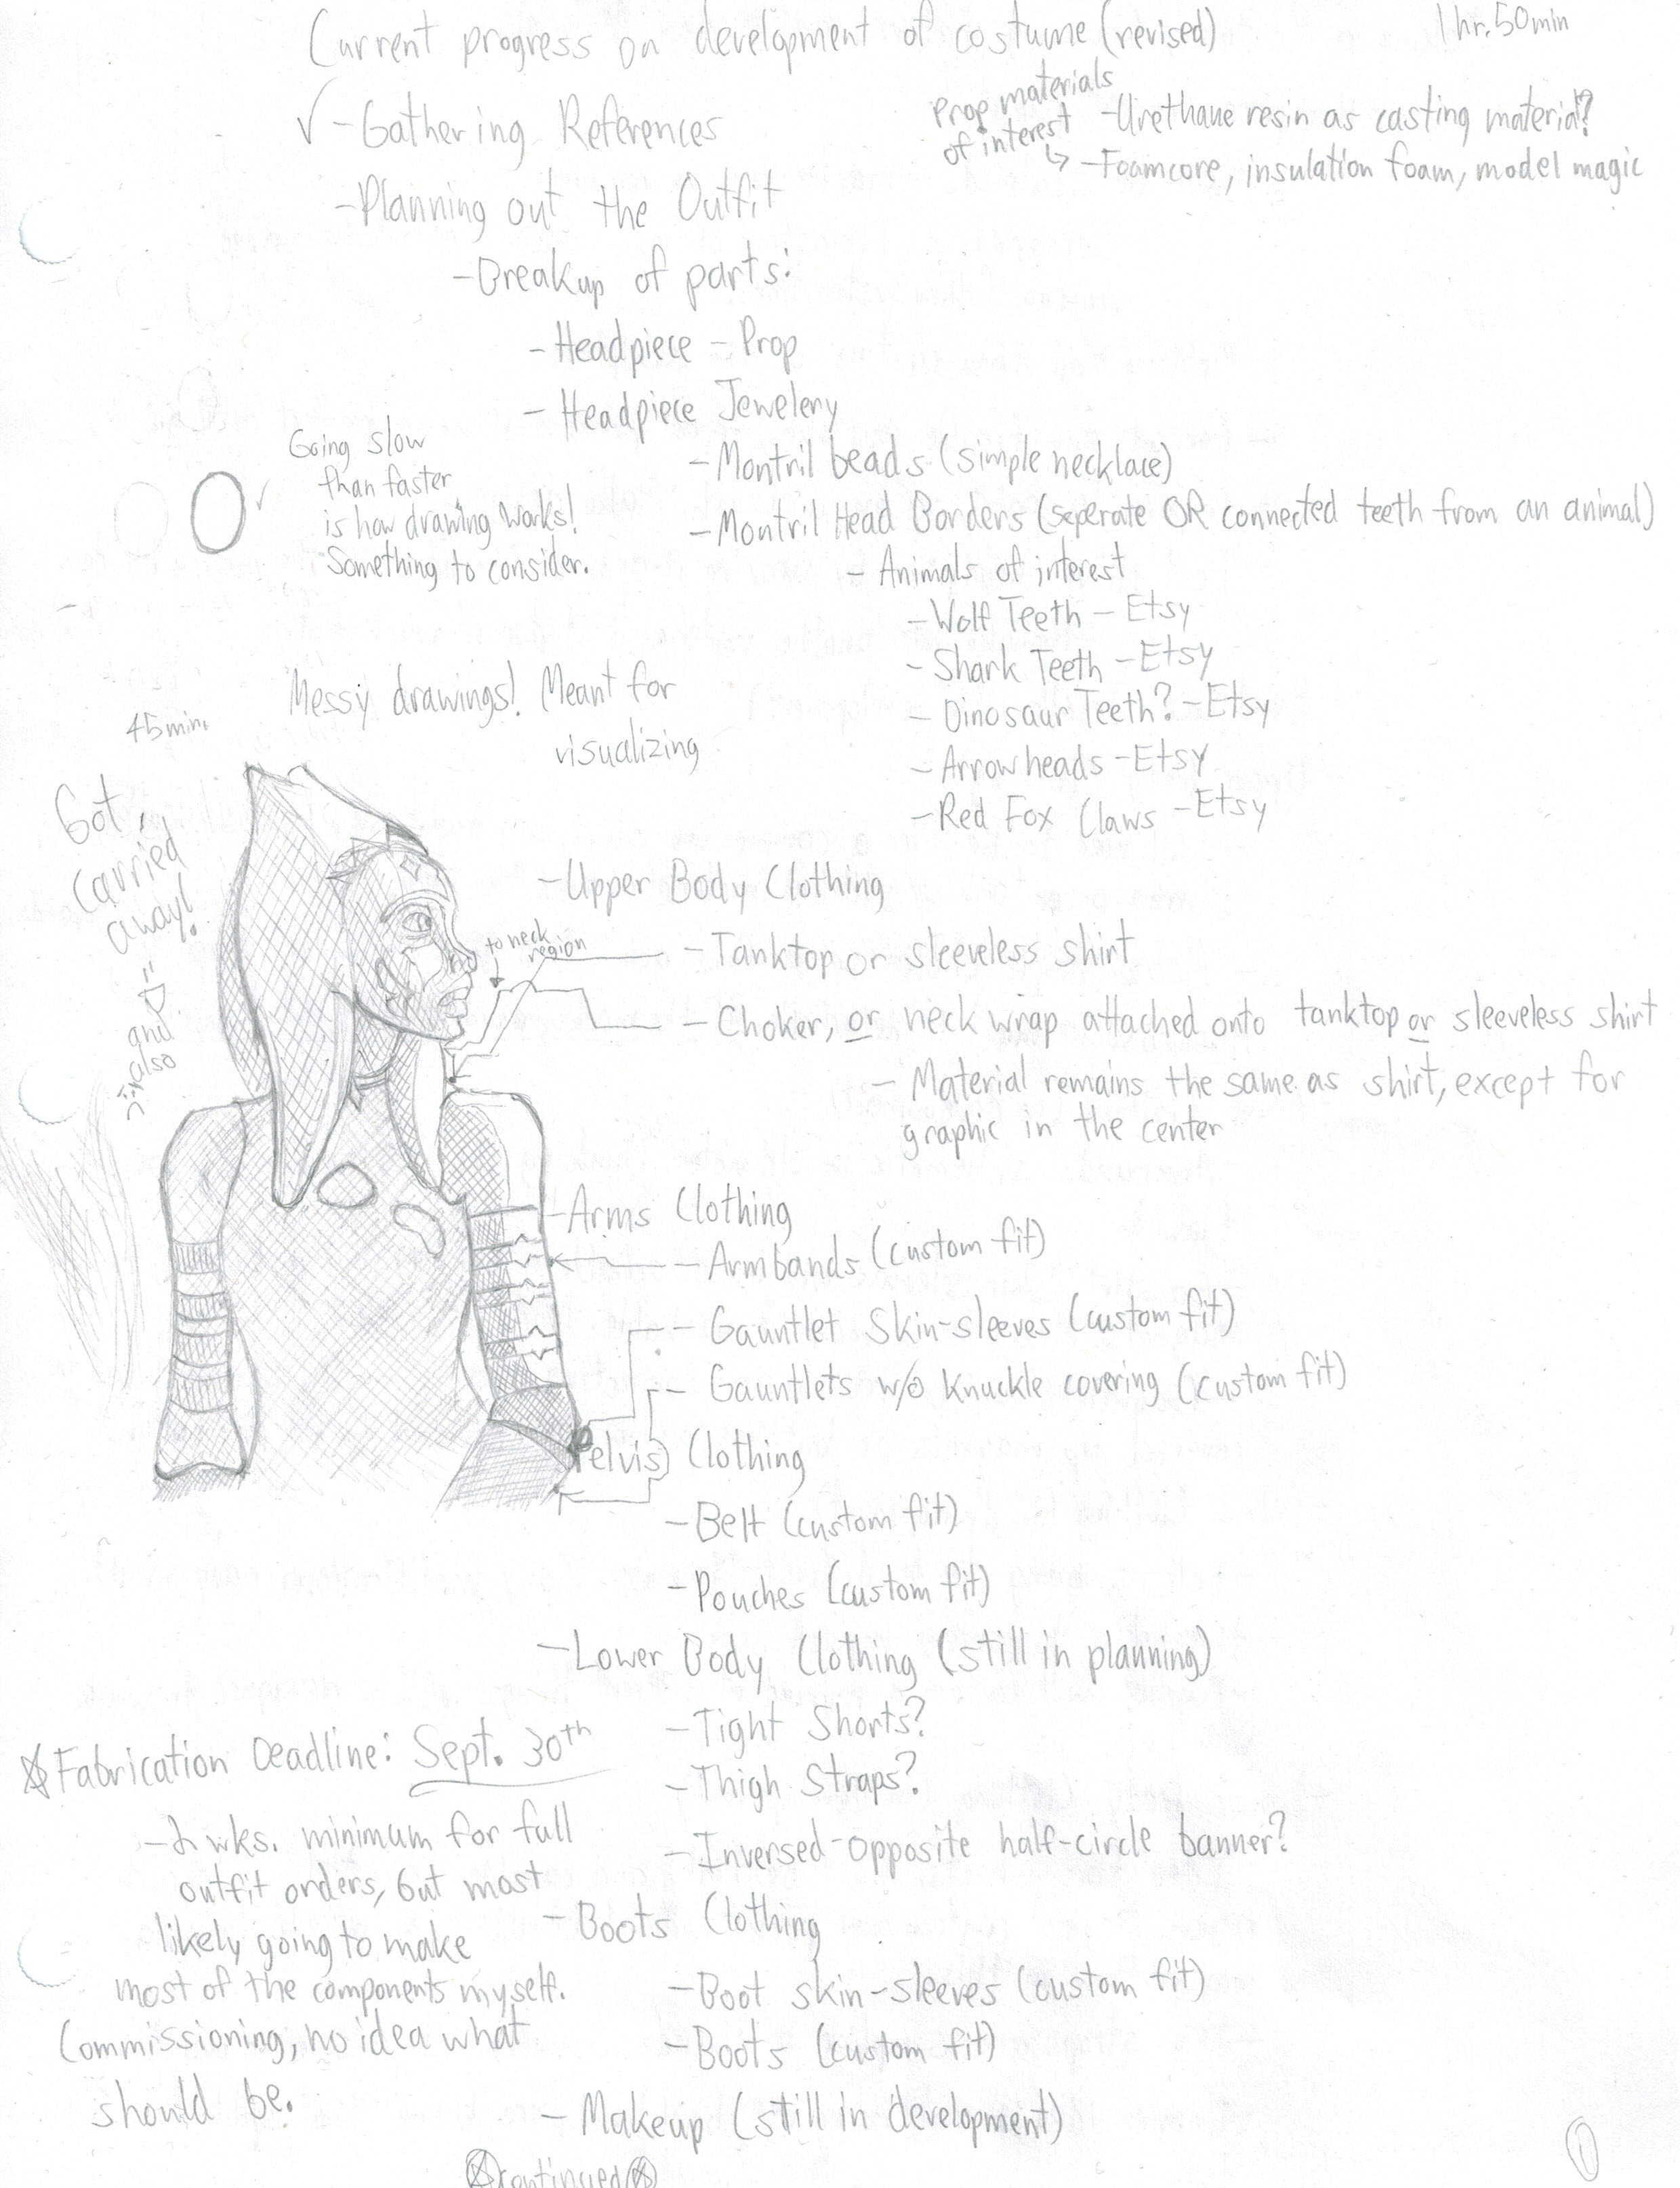 Current progress on development of costume (revised)
1 hr. 50 min
Prop materials
of interest
↳
-Urethane resin as casting material?
-Foamcore, insulation foam, model magic
✓ -Gathering References
-Planning out the Outfit
-Breakup of parts:
-Headpiece - Prop
-Headpiece Jewelery
-Montril beads (simple necklace)
-Montril Head Borders (seperate OR connected teeth from an animal)
-Animals of interest
-Wolf Teeth - Etsy
-Shark Teeth - Etsy
-Dinosaur Teeth? - Etsy
-Arrowheads - Etsy
-Red Fox Claws - Etsy
Going slow
than faster
is how drawing works!
Something to consider.
Messy drawings! Meant for
visualizing
45 min.
Got
carried
away!
and
also
-Upper Body Clothing
to neck
region
-Tanktop or sleeveless shirt
-Choker, or neck wrap attached onto tanktop or sleeveless shirt
-Material remains the same as shirt, except for
graphic in the center
-Arms Clothing
-Armbands (custom fit)
-Gauntlet Skin-sleeves (custom fit)
-Gauntlets w/o knuckle covering (custom fit)
Pelvis Clothing
-Belt (custom fit)
-Pouches (custom fit)
-Lower Body Clothing (still in planning)
-Tight Shorts?
-Thigh Straps?
-Inversed-opposite half-circle banner?
-Boots Clothing
-Boot skin-sleeves (custom fit)
-Boots (custom fit)
-Makeup (still in development)
Fabrication Deadline: Sept. 30th
-2 wks. minimum for full
outfit orders, but most
likely going to make
most of the components myself.
Commissioning, no idea what
should be.
continued
1